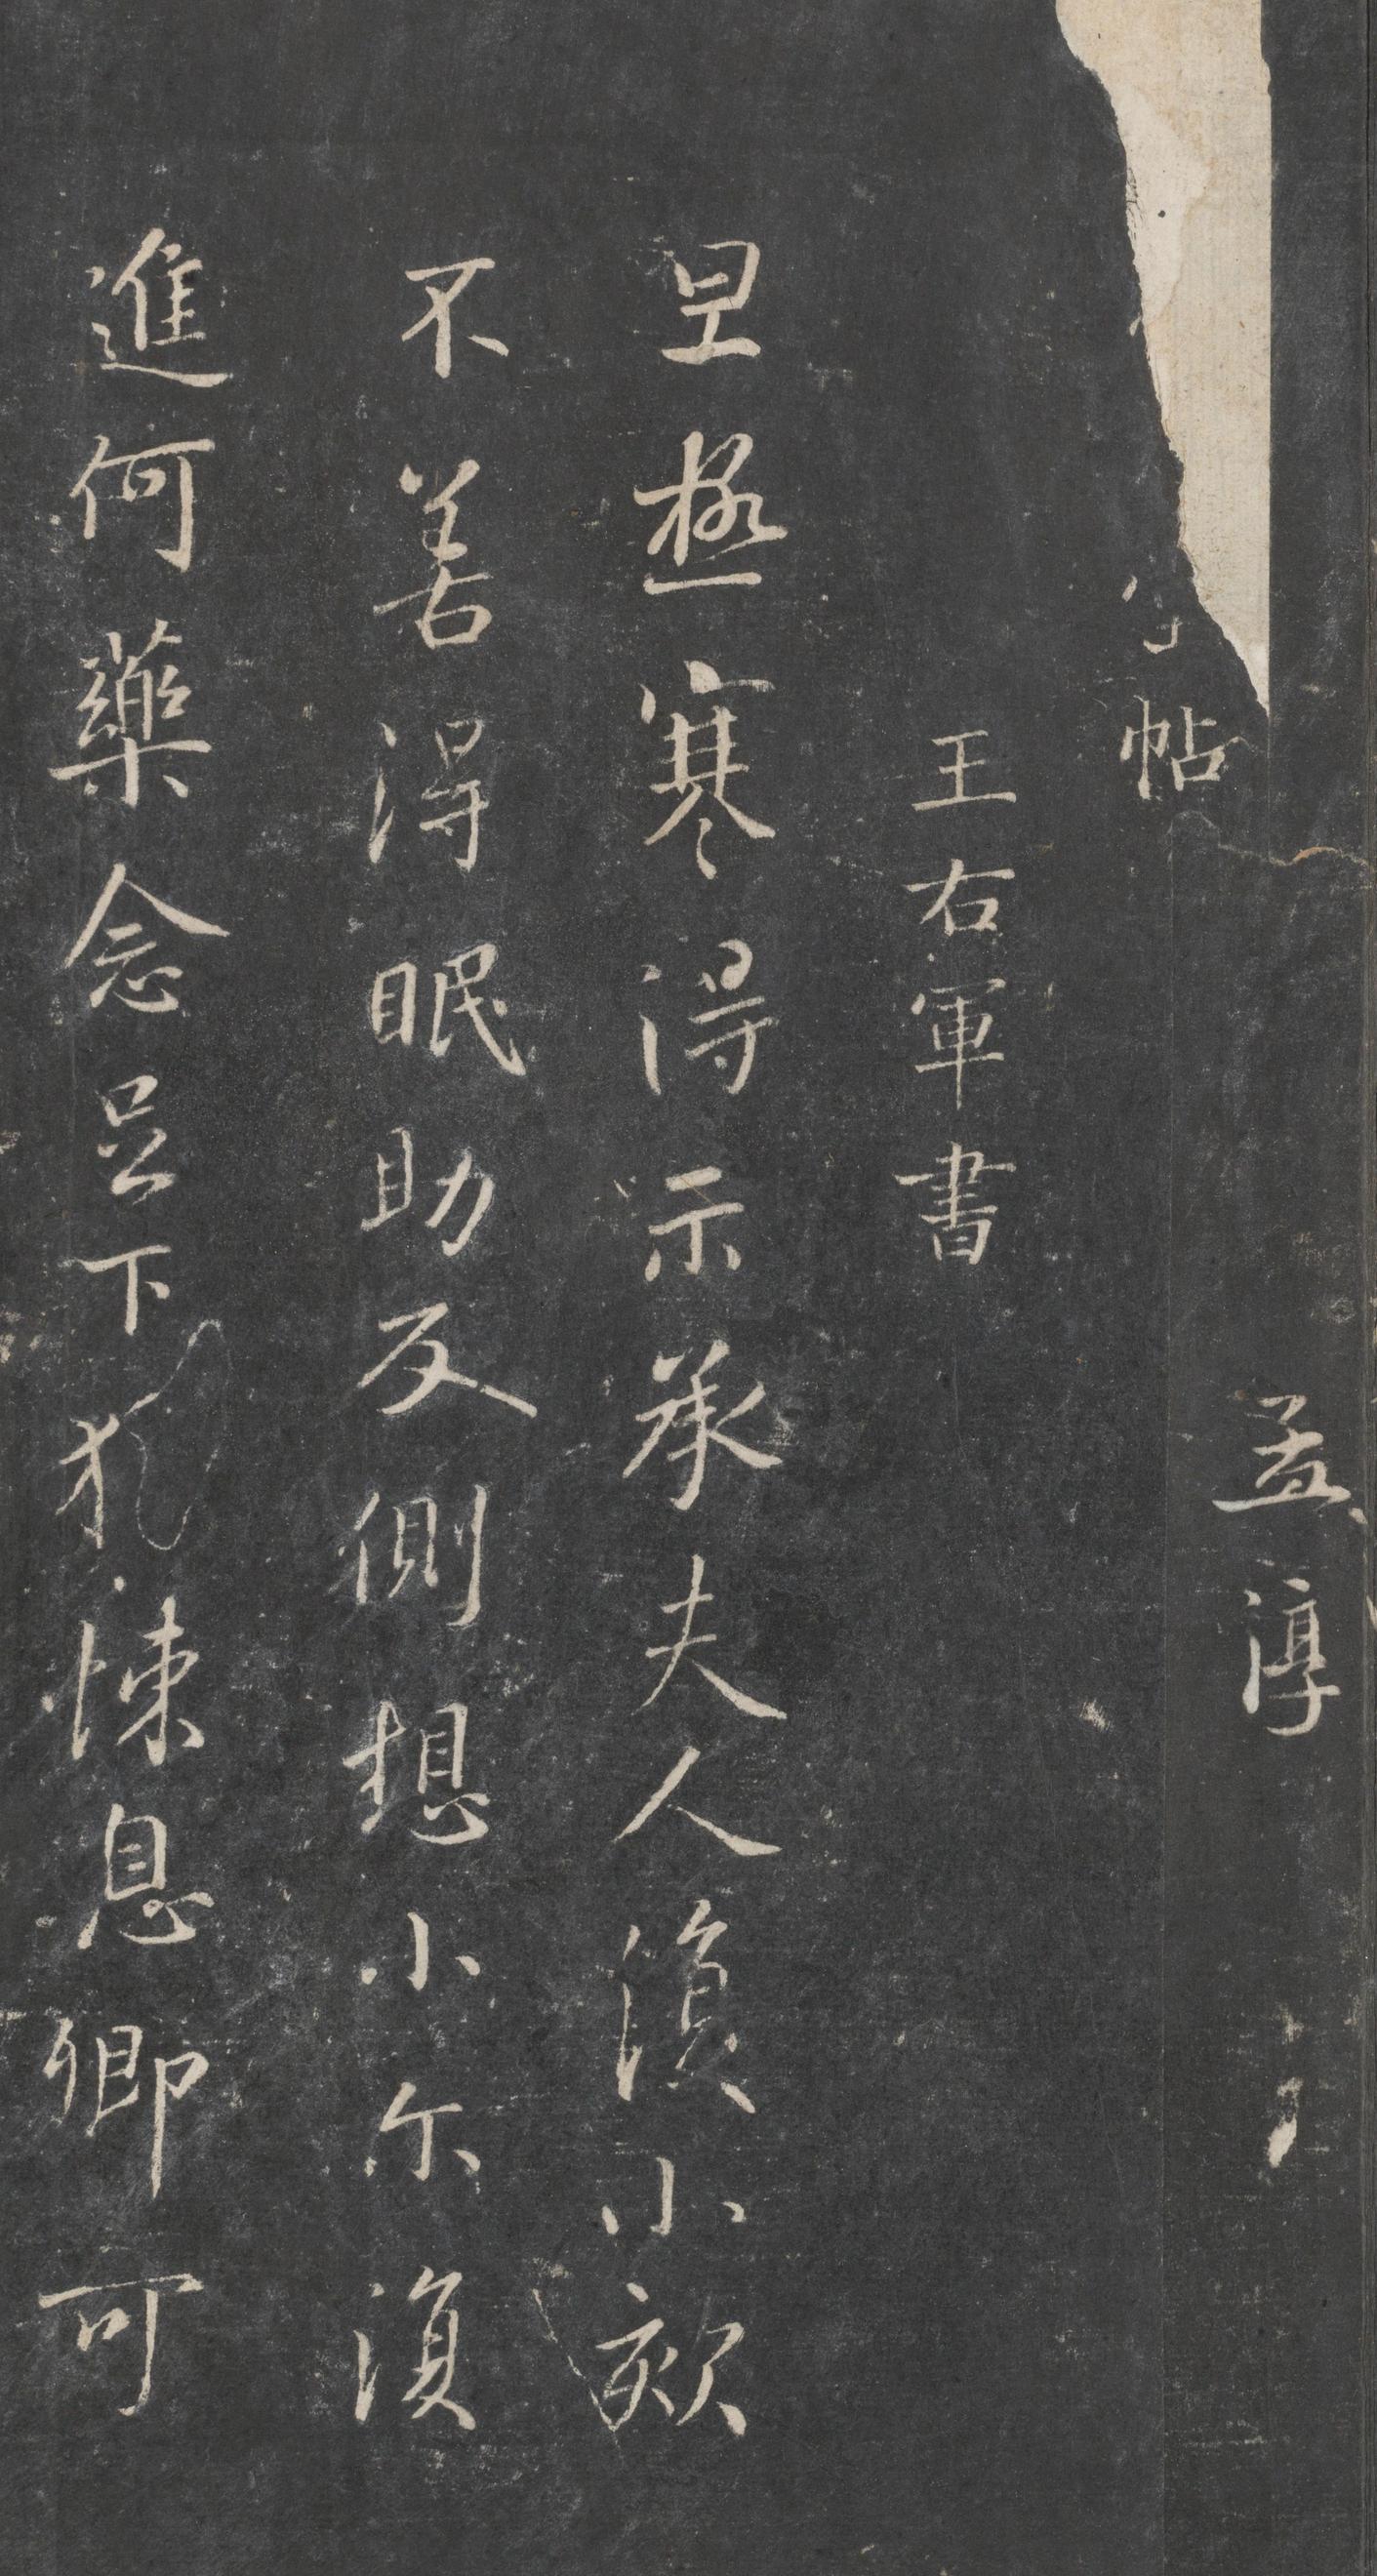 孟淳
帖
王右軍書
旦極寒得示承夫人須小欬
不善得眠助反側想小尔復
進何藥念足下猶悚息卿可